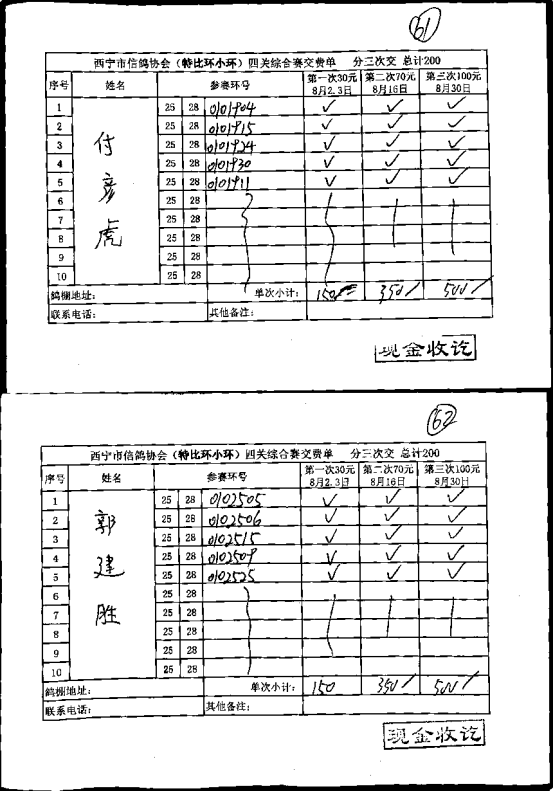 61
西宁市信鸽协会（特比环小环）四关综合赛交费单 分三次交 总计200
序号 姓名 参赛环号 第一次30元 8月2.3日 第二次70元 8月16日 第三次100元 8月30日
付彦虎
1 25 28 0101904 ✓ ✓ ✓
2 25 28 0101915 ✓ ✓ ✓
3 25 28 0101924 ✓ ✓ ✓
4 25 28 0101930 ✓ ✓ ✓
5 25 28 0101911 ✓ ✓ ✓
6 25 28
7 25 28
8 25 28
9 25 28
10 25 28
鸽棚地址： 单次小计： 150 350/ 500/
联系电话： 其他备注：
现金收讫
62
西宁市信鸽协会（特比环小环）四关综合赛交费单 分三次交 总计200
序号 姓名 参赛环号 第一次30元 8月2.3日 第二次70元 8月16日 第三次100元 8月30日
郭建胜
1 25 28 0102505 ✓ ✓ ✓
2 25 28 0102506 ✓ ✓ ✓
3 25 28 0102515 ✓ ✓ ✓
4 25 28 0102509 ✓ ✓ ✓
5 25 28 0102525 ✓ ✓ ✓
6 25 28
7 25 28
8 25 28
9 25 28
10 25 28
鸽棚地址： 单次小计： 150 350/ 500/
联系电话： 其他备注：
现金收讫